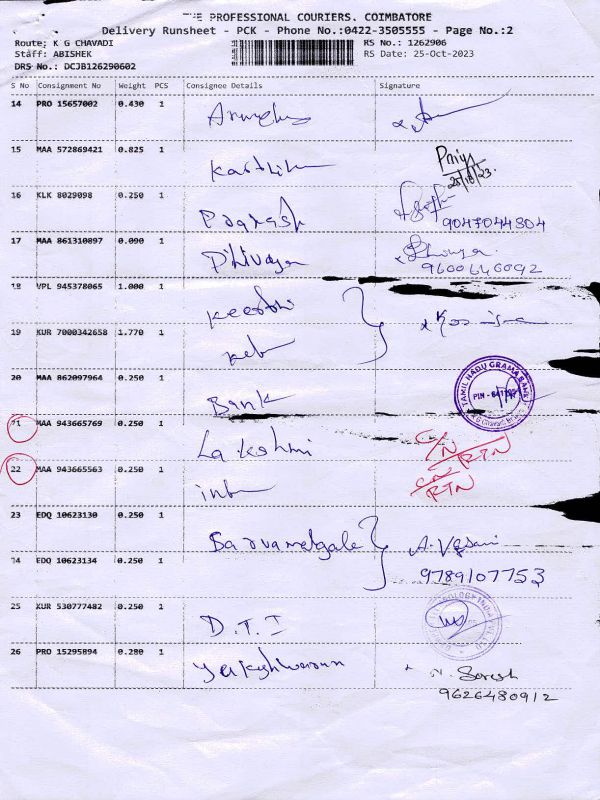 THE PROFESSIONAL COURIERS. COIMBATORE
Delivery Runsheet - PCK - Phone No.:0422-3505555 - Page No.:2
Route: K G CHAVADI RS No.: 1262906
Staff: ABISHEK RS Date: 25-Oct-2023
DRS No.: DCJB126290602
S No Consignment No Weight PCS Consignee Details Signature
14 PRO 15657002 0.430 1
15 MAA 572869421 0.825 1 Karthik Priya
25/10/23.
16 KLK 8029098 0.250 1 Pragash 9047044804
17 MAA 861310897 0.090 1 Dhivaya
9600640092
18 VPL 945378065 1.000 1 Keerthi
19 KUR 7000342658 1.770 1
20 MAA 862097964 0.250 1 Bank TAMIL NADU GRAMA BANK
21 MAA 943665769 0.250 1 Lakshmi C/N RTN
22 MAA 943665563 0.250 1 RTN
23 EDQ 10623130 0.250 1
24 EDQ 10623134 0.250 1 9789107753
25 KUR 530777482 0.250 1 D.T.I
26 PRO 15295894 0.280 1 N. Suresh
9626480912